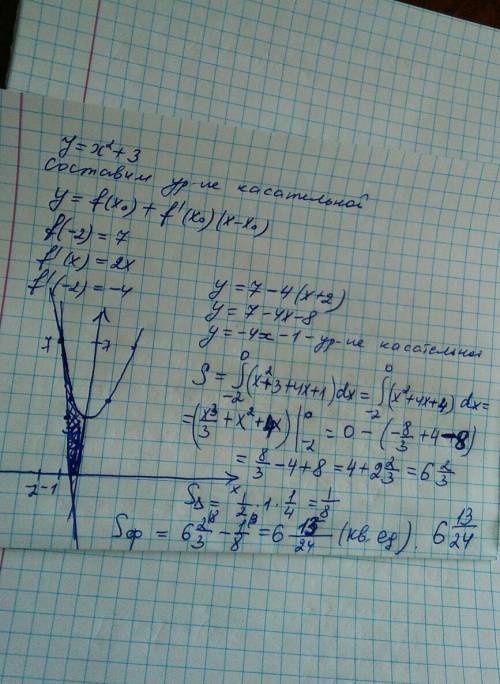 y = x² + 3
составим ур-ие касательной
y = f(x₀) + f'(x₀)(x-x₀)
f(-2) = 7
f'(x) = 2x
f'(-2) = -4
y = 7 - 4(x+2)
y = 7 - 4x - 8
y = -4x - 1 - ур-ие касательной
S = ∫₋₂⁰ (x² + 3 + 4x + 1) dx = ∫₋₂⁰ (x² + 4x + 4) dx =
= (x³/3 + x² + 4x) |₋₂⁰ = 0 - (-8/3 + 4 - 8)
= 8/3 - 4 + 8 = 4 + 2 2/3 = 6 2/3
7 7
-2 -1 x
S△ = 1/2 · 1 · 1/4 = 1/8
Sф = 6 2/3 - 1/8 = 6 13/24 (кв. ед). 6 13/24